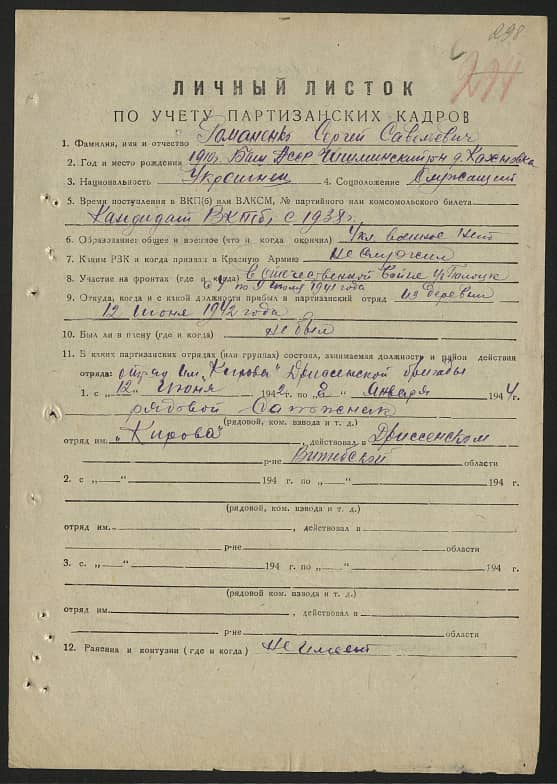 298
274
ЛИЧНЫЙ ЛИСТОК
ПО УЧЕТУ ПАРТИЗАНСКИХ КАДРОВ
1. Фамилия, имя и отчество Романенко Сергей Савельевич
2. Год и место рождения Баш АССР Чишминский рн д. Каховка
3. Национальность Украинец 4. Соцположение Служащий
5. Время поступления в ВКП(б) или ВЛКСМ, № партийного или комсомольского билета
Кандидат ВКПб, с 1938 г.
6. Образование: общее и военное (что и когда окончил) 4 кл. военное нет
7. Каким РВК и когда призван в Красную Армию не служил
8. Участие на фронтах (где и когда) в отечественной войне
по 9 июля 1941 года
9. Откуда, когда и с какой должности прибыл в партизанский отряд из деревни
12 июня 1942 года
10. Был ли в плену (где и когда) не был
11. В каких партизанских отрядах (или группах) состоял, занимаемая должность и район действия
отряда: отряд им. "Кирова" Дриссенской бригады
1. с „12“ июня 1942 г. по „8“ января 1944 г.
рядовой Сапожник
(рядовой, ком. взвода и т. д.)
отряд им. „Кирова“, действовал в Дриссенском
р-не Витебской области
2. с „—“ 194 г. по „—“ 194 г.
(рядовой, ком. взвода и т. д.)
отряд им. , действовал в
р-не области
3. с „—“ 194 г. по „—“ 194 г.
(рядовой, ком. взвода и т. д.)
отряд им. , действовал в
р-не области
12. Ранения и контузии (где и когда) не имеет